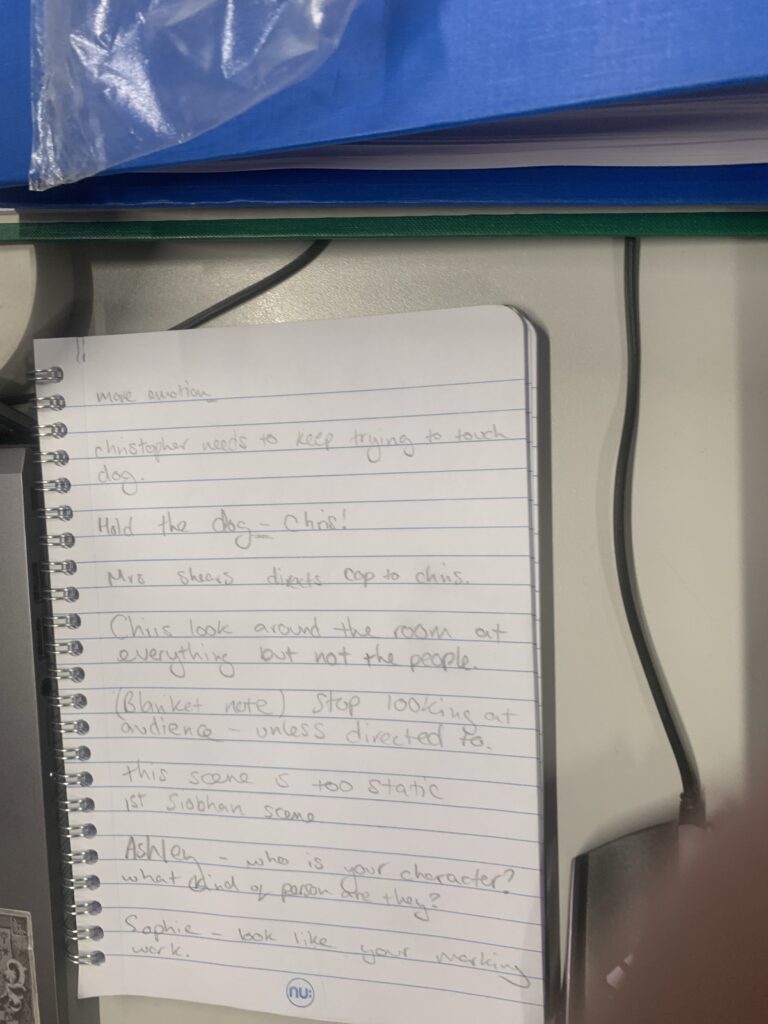 more emotion
christopher needs to keep trying to touch
dog.
Hold the dog - Chris!
Mrs shears directs cop to chris.
Chris look around the room at
everything but not the people.
(Blanket note) Stop looking at
audience - unless directed to.
this scene is too static
1st Siobhan scene
Ashley - who is your character?
what kind of person are they?
Sophie - look like your marking
work.
nu: